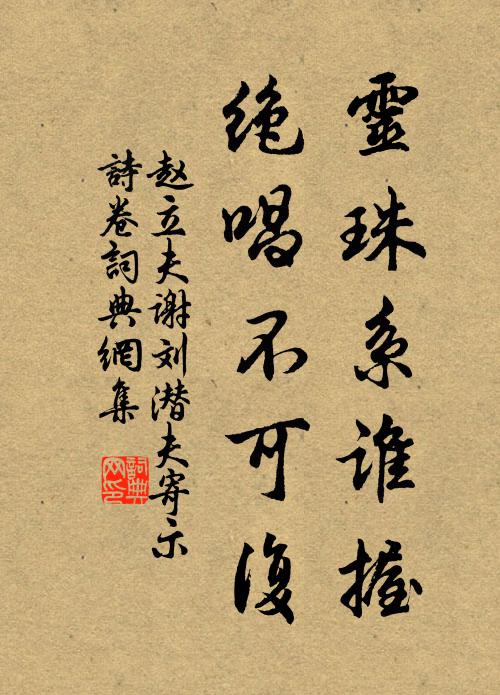 靈珠系谁握
绝唱不可復
赵立夫谢刘潜夫寄示
詩卷詞典網集
詞典网印